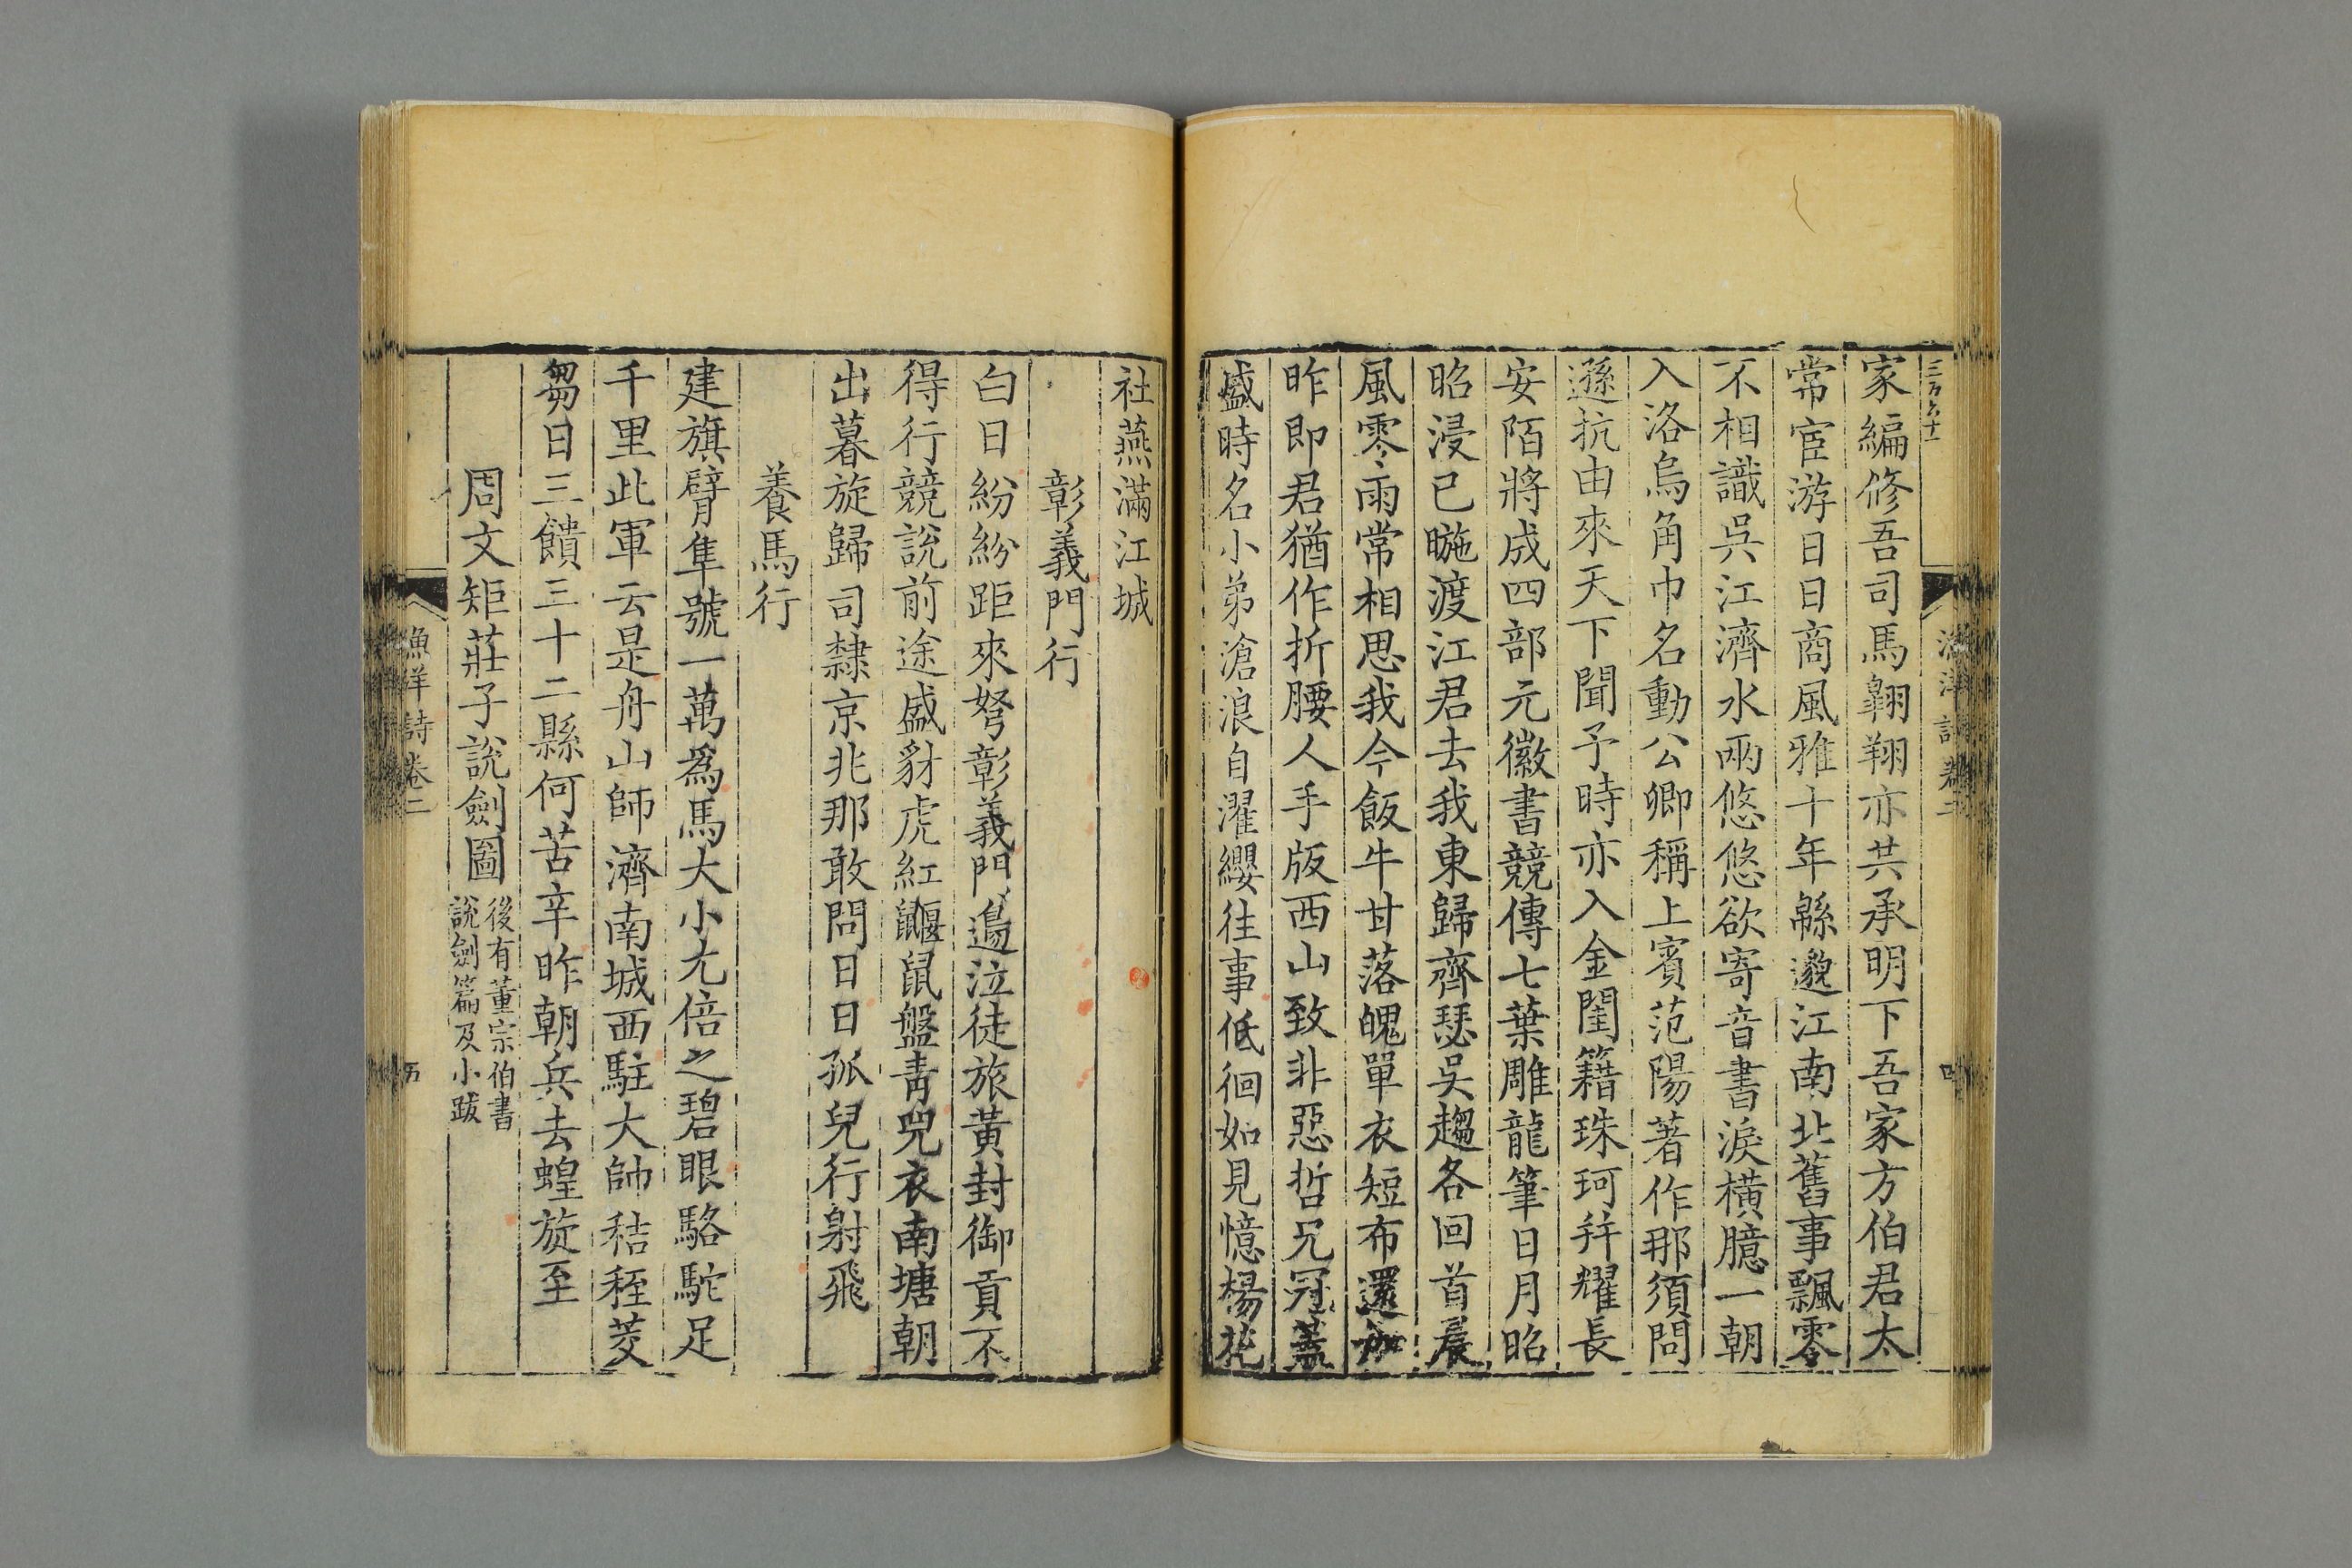 家編修吾司馬翱翔亦共承明下吾家方伯君太
常宦游日日商風雅十年緜邈江南北舊事飄零
不相識吳江濟水兩悠悠欲寄音書淚橫臆一朝
入洛烏角巾名動公卿稱上賓范陽著作那須問
遜抗由來天下聞予時亦入金閨籍珠珂幷耀長
安陌將成四部元徽書競傳七葉雕龍筆日月昭
昭浸已暆渡江君去我東歸齊瑟吳趨各回首晨
風零雨常相思我今飯牛甘落魄單衣短布還
昨即君猶作折腰人手版西山致非惡哲兄冠蓋
盛時名小弟滄浪自濯纓往事低徊如見憶楊花
漁洋詩卷二
社燕滿江城
彰義門行
白日紛紛距來弩彰義門邊泣徒旅黃封御貢不
得行競說前途盛豺虎紅鼴鼠盤青兕衣南塘朝
出暮旋歸司隸京兆那敢問日日孤兒行射飛
養馬行
建旗臂隼號一萬為馬大小尢倍之碧眼駱駝足
千里此軍云是舟山師濟南城西駐大帥秸秷茭
芻日三饋三十二縣何苦辛昨朝兵去蝗旋至
周文矩莊子說劍圖後有董宗伯書
說劍篇及小跋
漁洋詩卷二
五